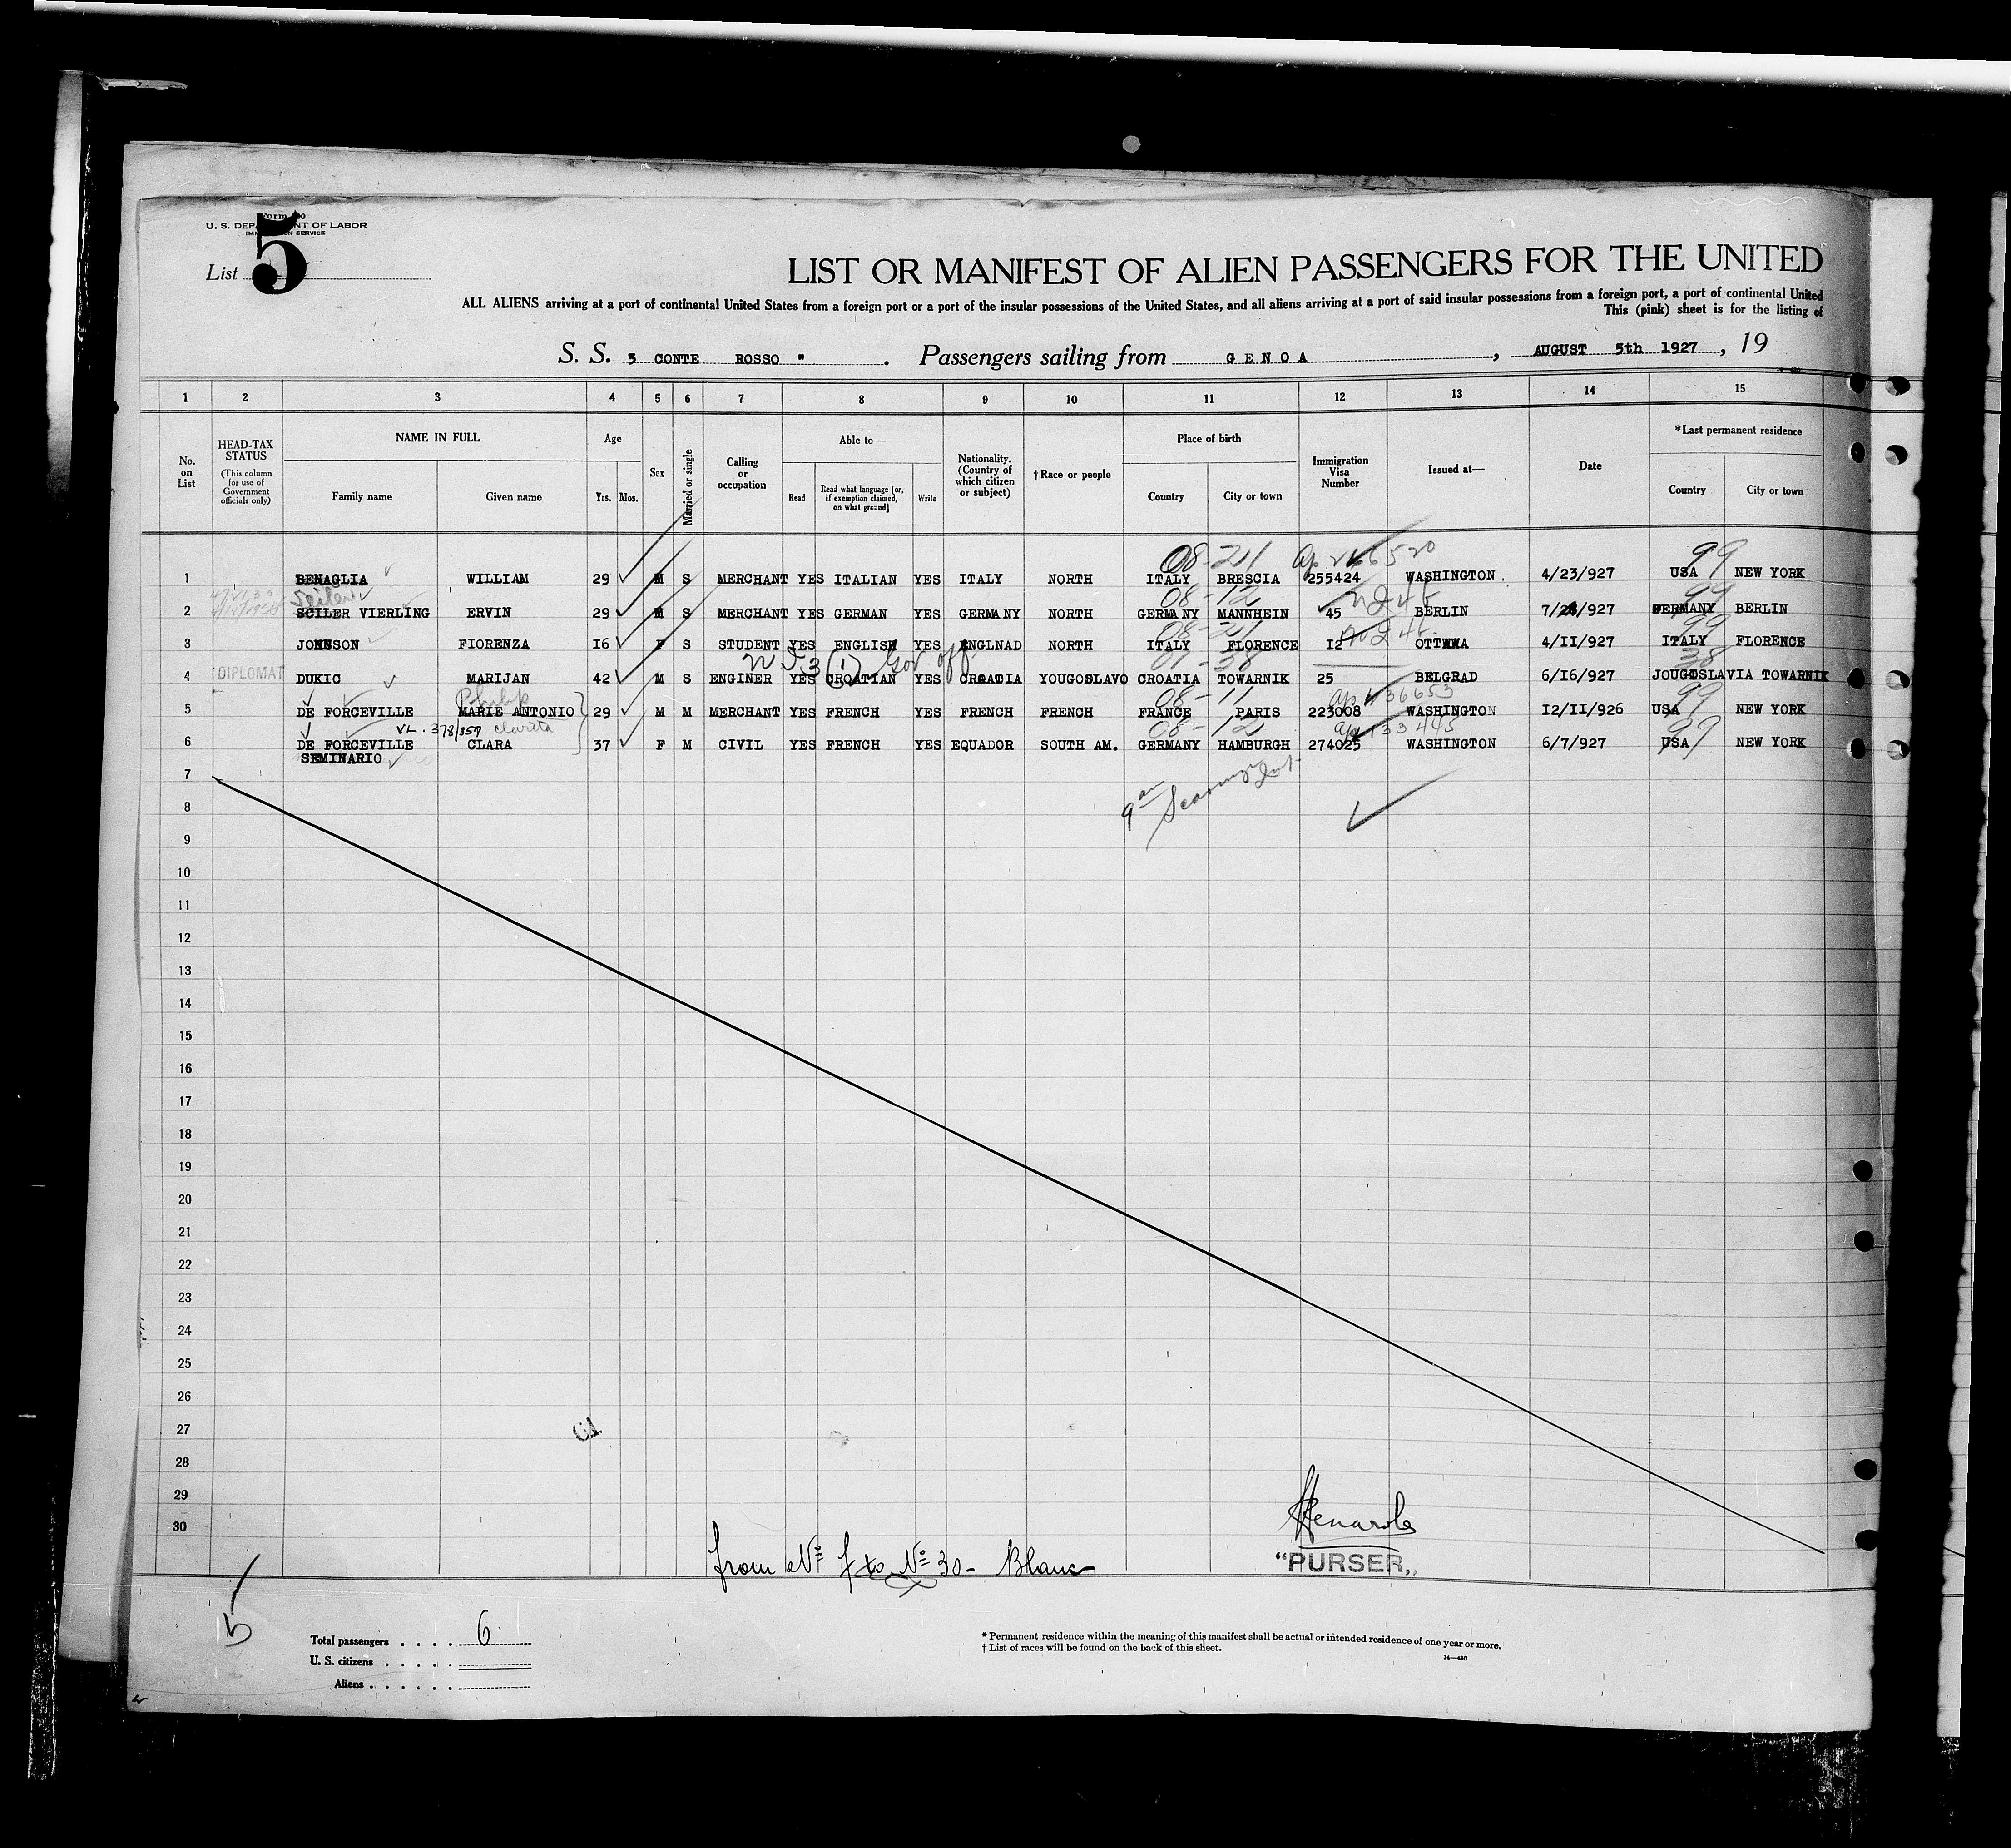 Form 630
U. S. DEPARTMENT OF LABOR
IMMIGRATION SERVICE
List 5
LIST OR MANIFEST OF ALIEN PASSENGERS FOR THE UNITED
ALL ALIENS arriving at a port of continental United States from a foreign port or a port of the insular possessions of the United States, and all aliens arriving at a port of said insular possessions from a foreign port, a port of continental United
This (pink) sheet is for the listing of
S. S. " CONTE ROSSO " . Passengers sailing from GENOA , AUGUST 5th 1927 , 19
1 2 3 4 5 6 7 8 9 10 11 12 13 14 15
No. on List HEAD-TAX STATUS (This column for use of Government officials only) NAME IN FULL Family name Given name Age Yrs. Mos. Sex Married or single Calling or occupation Able to— Read Read what language [or, if exemption claimed, on what ground] Write Nationality. (Country of which citizen or subject) †Race or people Place of birth Country City or town Immigration Visa Number Issued at— Date *Last permanent residence Country City or town
08-211 99
1 BENAGLIA WILLIAM 29 M S MERCHANT YES ITALIAN YES ITALY NORTH ITALY BRESCIA 255424 WASHINGTON. 4/23/927 USA NEW YORK
Seiler 08-12 99
2 SCILER VIERLING ERVIN 29 M S MERCHANT YES GERMAN YES GERMANY NORTH GERMANY MANNHEIN 45 BERLIN 7/28/927 GERMANY BERLIN
08-211 99
3 JOHNSON FIORENZA I6 F S STUDENT YES ENGLISH YES ENGLNAD NORTH ITALY FLORENCE I2 OTTWWA 4/II/927 ITALY FLORENCE
3 (1) Gov off 38
4 DIPLOMAT DUKIC MARIJAN 42 M S ENGINER YES CROATIAN YES CROATIA YOUGOSLAVO CROATIA TOWARNIK 25 BELGRAD 6/I6/927 JOUGOSLAVIA TOWARNIK
Philip 08-11 Ap 136653 99
5 DE FORCEVILLE MARIE ANTONIO 29 M M MERCHANT YES FRENCH YES FRENCH FRENCH FRANCE PARIS 223008 WASHINGTON I2/II/926 USA NEW YORK
VL. 378/357 Clarita 08-12 Ap 133445 99
6 DE FORCEVILLE CLARA 37 F M CIVIL YES FRENCH YES EQUADOR SOUTH AM. GERMANY HAMBURGH 274025 WASHINGTON 6/7/927 USA NEW YORK
SEMINARIO
7
9 am
8
9
10
11
12
13
14
15
16
17
18
19
20
21
22
23
24
25
26
27
28
29
30
from Nº 7 to Nº 30 - Blanc
"PURSER"
Total passengers . . . . 6
U. S. citizens . . . . .
Aliens . . . . . .
* Permanent residence within the meaning of this manifest shall be actual or intended residence of one year or more.
† List of races will be found on the back of this sheet.
14—430